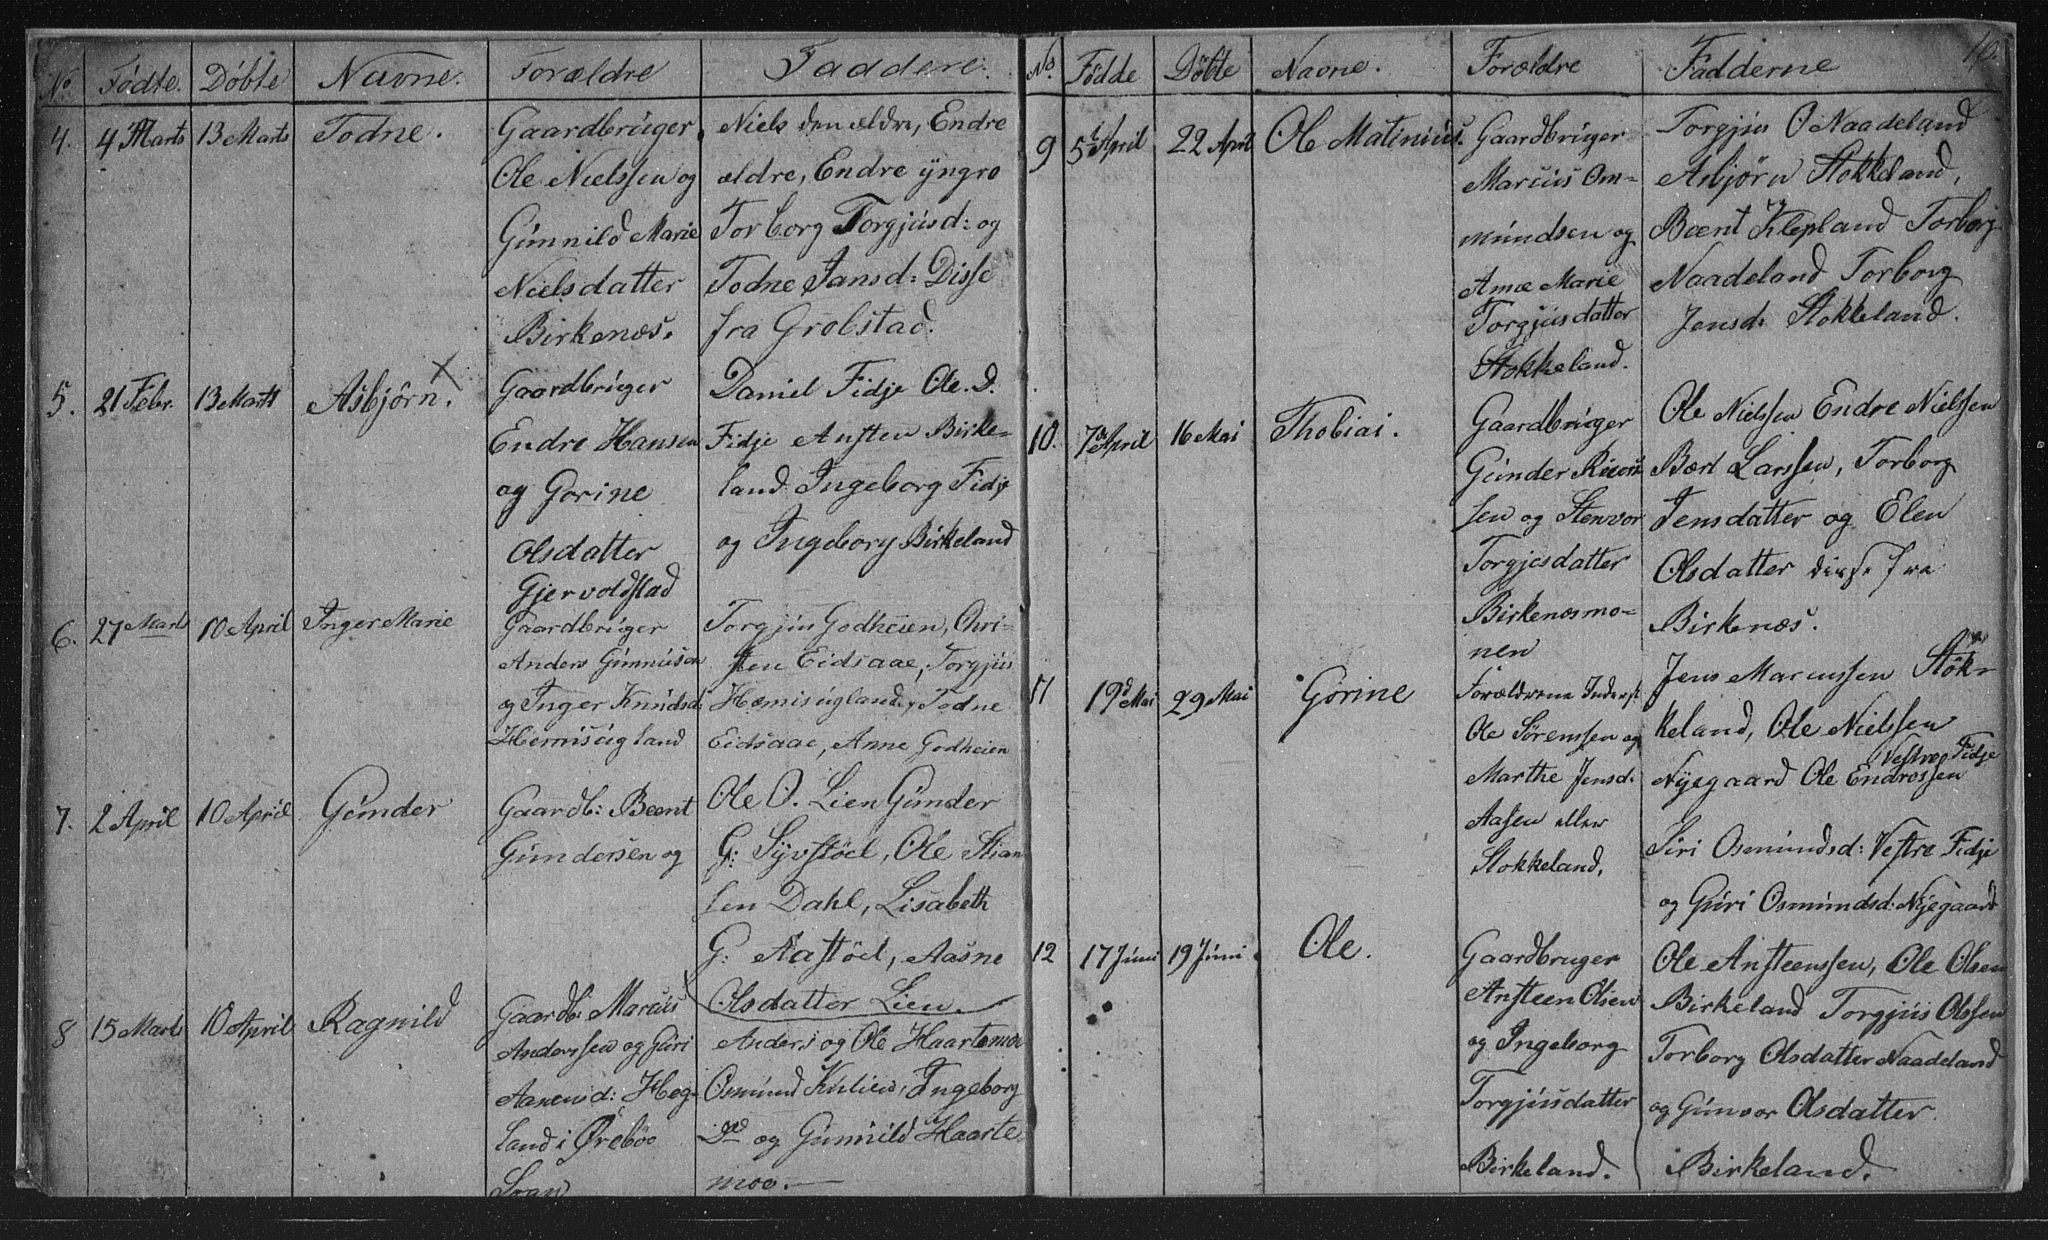 No. Fødte. Døbte Navne. Forældre Faddere.
4. 4 Marts 13 Marts Todne. Gaardbruger Niels den ældre, Endre
Ole Nielssen og ældre, Endre yngre
Gunnild Marie Torborg Torgjusd: og
Nielsdatter Todne Jansd: Disse
Birkenæs. fra Grobstad.
5. 21 Febr. 13 Marts Asbjørn. Gaardbruger Daniel Fidje Ole. D.
Endre Hansen Fidje Ansten Birke-
og Gorine land Ingeborg Fidje
Olsdatter og Ingeborg Birkeland
Gjervoldstad
6. 27 Marts 10 April Inger Marie Gaardbruger Torgjus Godheien, Chri-
Anders sten Eidsaae, Torgjus
og Inger Knudsd: Todne
Eidsaae, Anne Godheien
7. 2 April 10 April Gunder Gaardb: Beent Ole O. Lien Gunder
Gundersen og G: Ole Stian
sen Dahl, Lisabeth
G: Aastöel, Aasne
Olsdatter Lien.
8 15 Marts 10 April Ragnild Gaardb: Marcus Anders og Ole
Anderssen og Guri Osmund Ingeborg
Aanensd: Heg- Do og Gunnild Haarte
land i Ørebøe moe.
Sogn
10.
No. Födde Döbte Navne. Forældre Fadderne
9 5te April 22 April Ole Gaardbruger Torgjus O Naadeland
Marcus Om- Asbjørn Stokkeland,
mundsen og Beent Klepland Torborg
Marie Naadeland Torborg
Torgjusdatter Jensd: Stokkeland.
Stokkeland.
10. 7de April 16 Mai Thobias. Gaardbruger Ole Nielssen Endre Nielssen
Gunder Larssen, Torborg
sen og Stenvor Jensdatter og Elen
Torgjesdatter Olsdatter disse fra
Birkenæsmo- Birkenæs.
nen
11 19d Mai 29 Mai Gorine Forældrene Inderst Jens Marcussen Stok-
Ole Sørenssen og keland, Ole Nielssen
Marthe Jensd: Nyegaard Ole Endressen Vestre Fidje
Aasen eller Siri Osmundsd: Vestre Fidje
Stokkeland. og Guri Osmundsd: Nyegaard
12 17 Juni 19 Juni Ole. Gaardbruger Ole Ansteenssen, Ole Olsen
Ansteen Olsen Birkeland Torgjus Olssen
og Ingeborg Torborg Olsdatter Naadeland
Torgjusdatter og Gunvor Olsdatter
Birkeland. Birkeland.